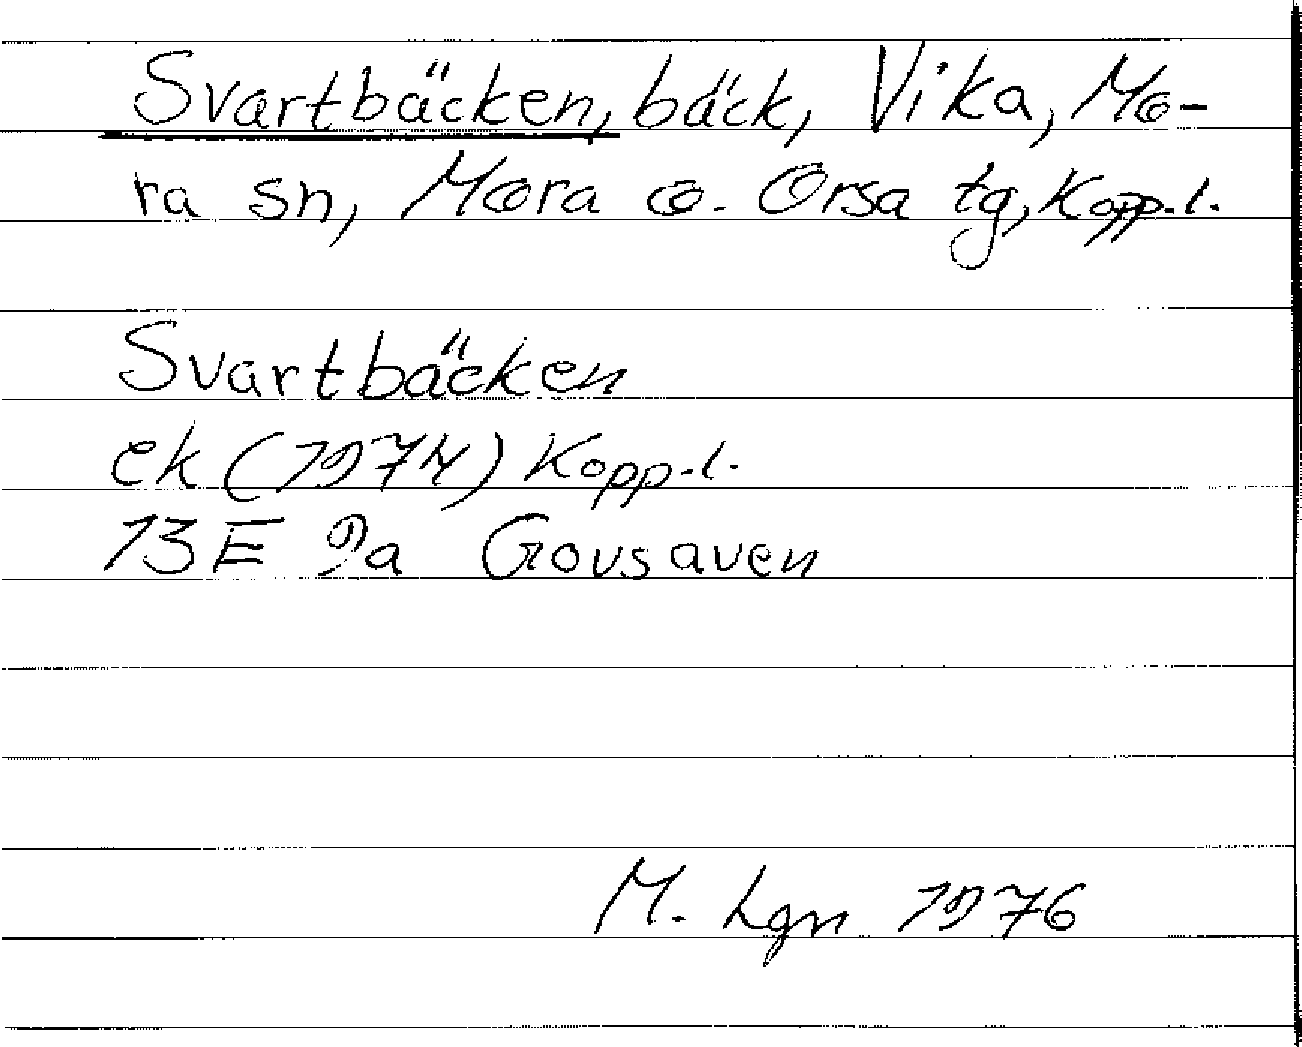 Svartbäcken, bäck, Vika, Mo-
ra sn, Mora o. Orsa tg, Kopp.l.
Svartbäcken
ek (1974) Kopp.l.
13E 9a Govsaven
M. Lgn 1976